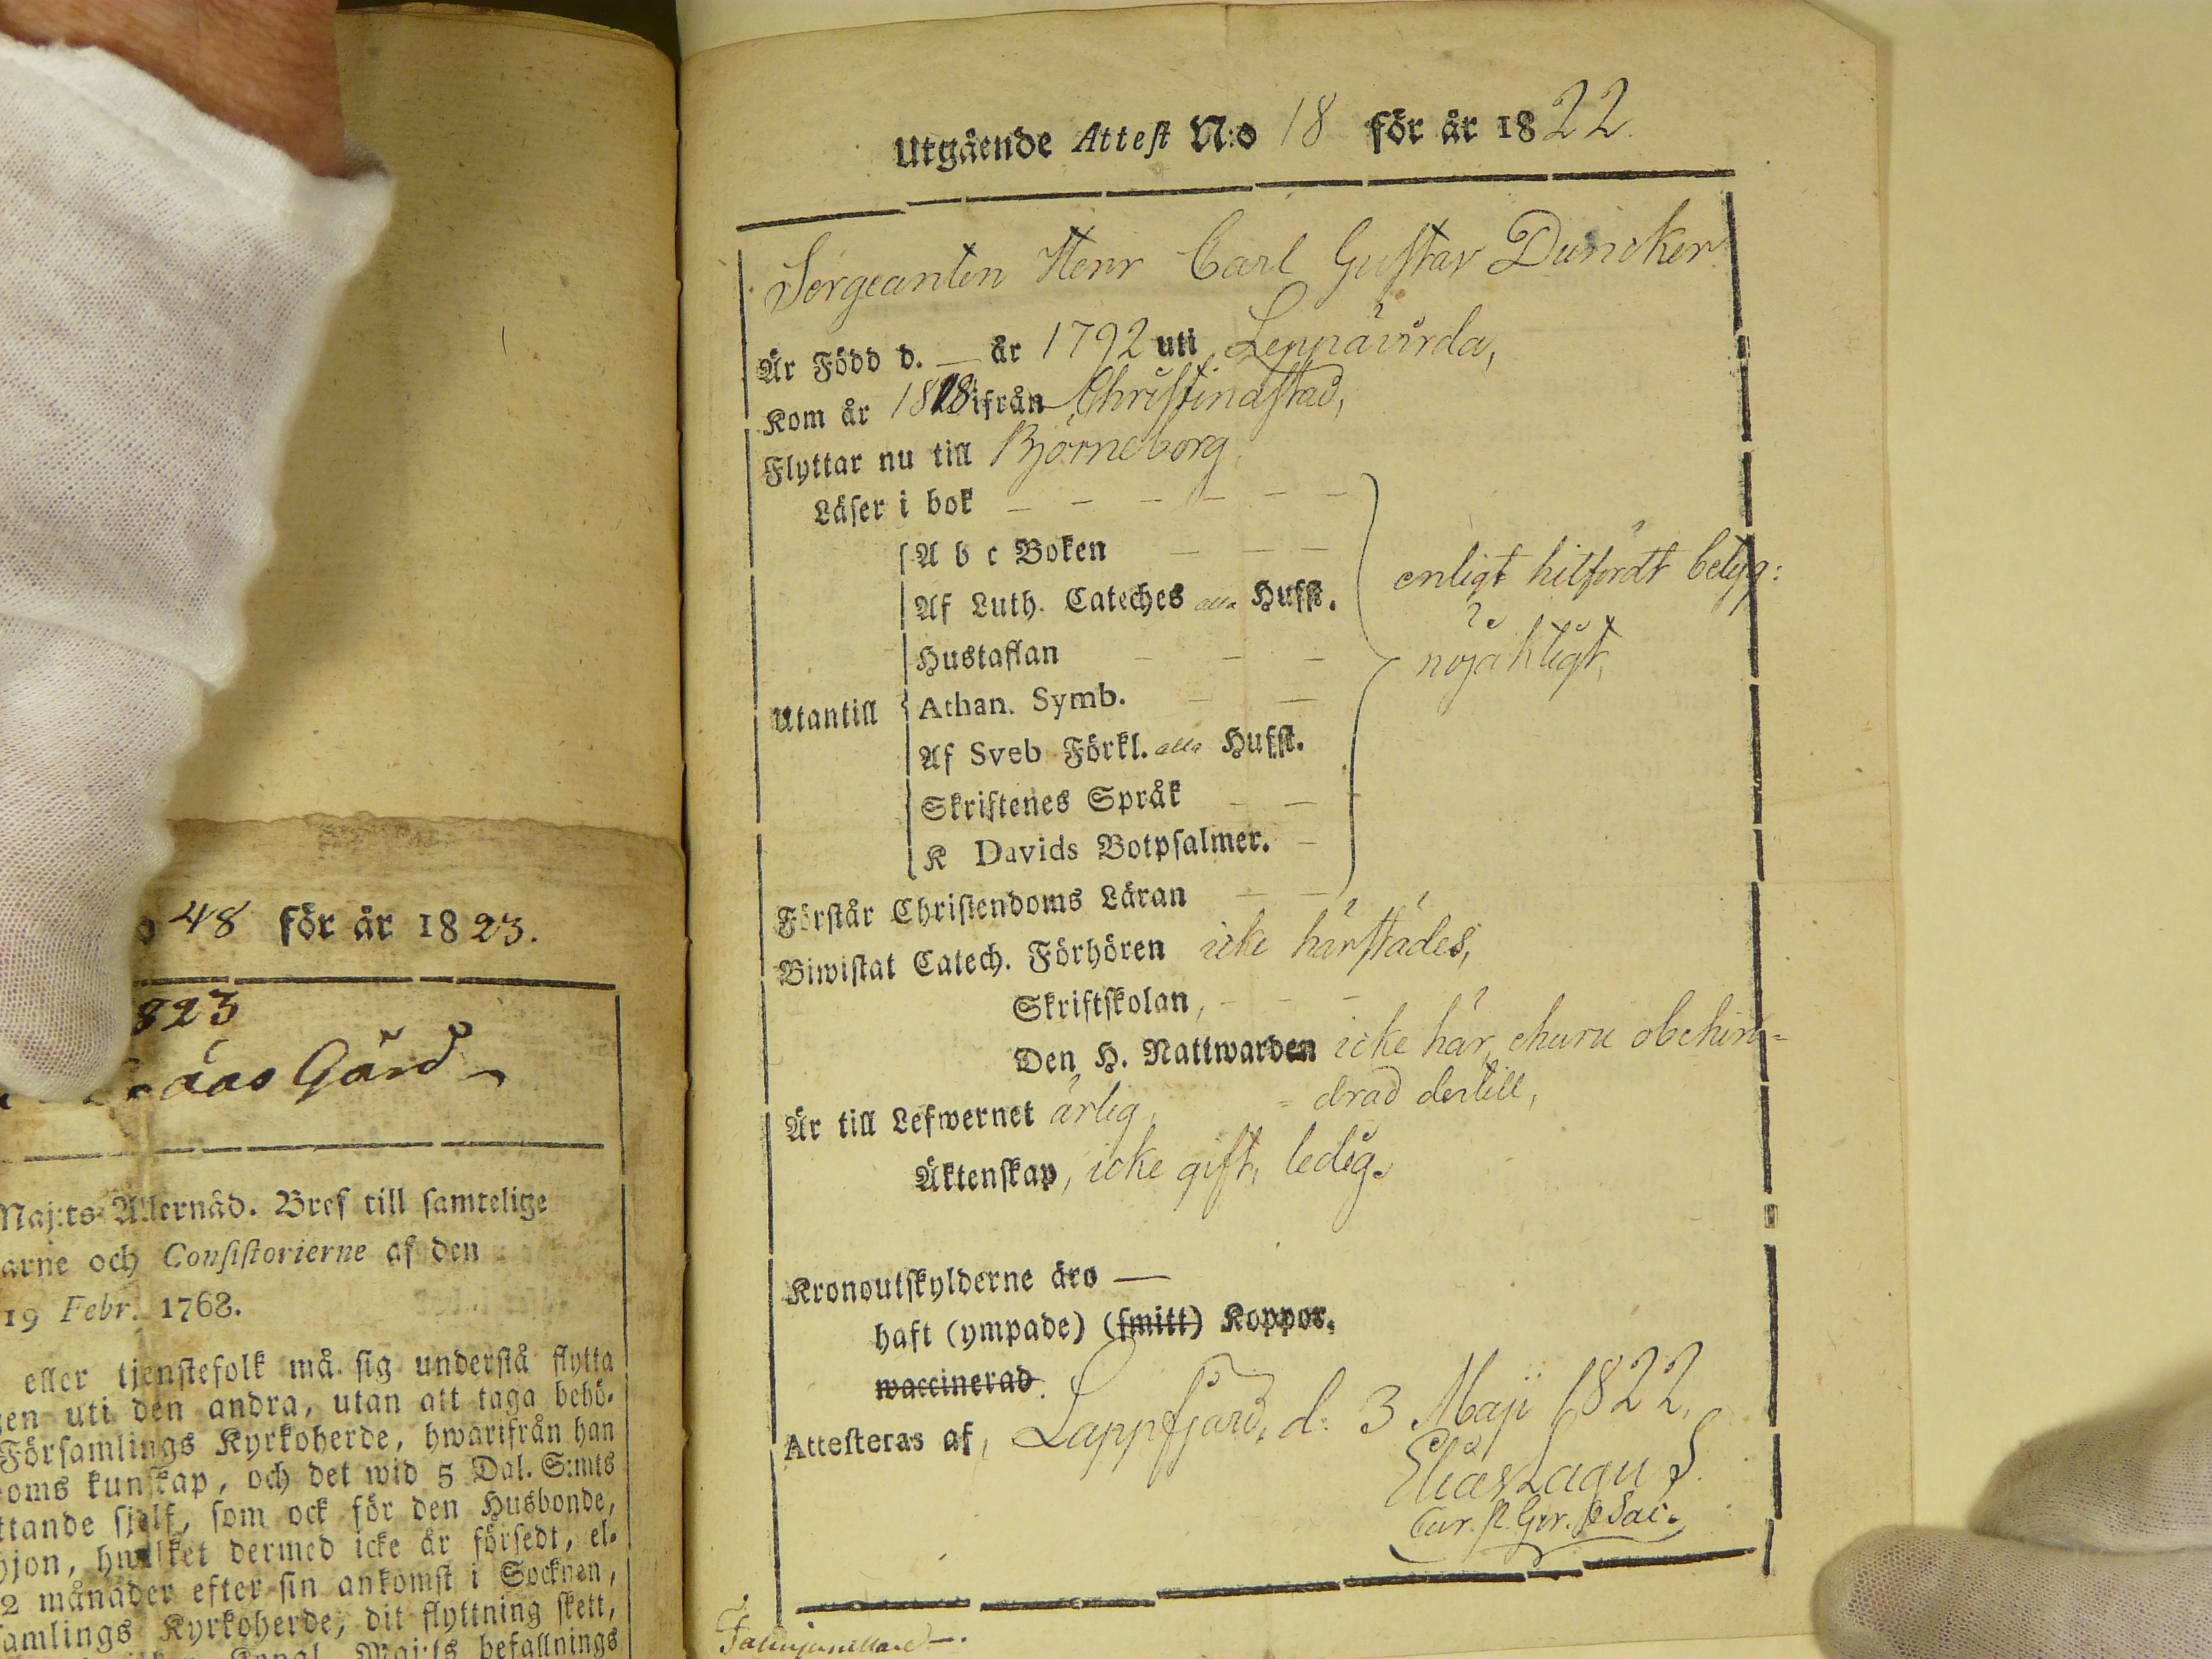 48 för år 1823.
823
Gård
Maj:ts Allernåd. Bref till samtelige
arne och Consistorierne af den
19 Febr. 1768.
eller tjenstefolk må sig understå flytta
en uti den andra, utan att taga behö-
Församlings Kyrkoherde, hwarifrån han
oms kunskap, och det wid 5 Dal. S:mts
ttande sjelf, som ock för den Husbonde,
hjon, hwilket dermed icke är försedt, el-
2 månader efter sin ankomst i Socknen,
samlings Kyrkoherde, dit flyttning skett,
Maj:ts befallnings
Utgående Attest N:o 18 för år 1822.
Sergeanten Herr Carl Gustav Duncker
Är Född d. — år 1792 uti Leppävirda,
Kom år 1818 ifrån Christinastad,
Flyttar nu till Björneborg
Läser i bok – – – – – –
A b c Boken – – –
Af Luth. Cateches alla Hufst. enligt hitfördt betyg:
Hustaflan – – – nöjaktligt,
Utantill Athan. Symb. – –
Af Sveb Förkl. alla Hufst.
Skriftenes Språk – –
K Davids Botpsalmer. –
Förstår Christendoms Läran – –
Biwistat Catech. Förhören icke härstädes,
Skriftskolan, – – –
Den H. Nattwarden icke här, ehuru obehin=
Är till Lefwernet ärlig, =drad dertill,
Äktenskap, icke gift, ledig.
Kronoutskylderne äro —
haft (ympade) (smitt) Koppor.
waccinerad.
Attesteras af, Lappfjärd, d: 3 Maji 1822,
Elias Lagus.